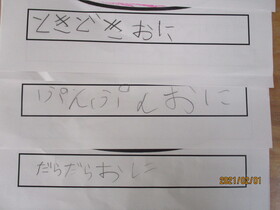 どきどきおに
ぷんぷんおに
だらだらおに
2021/02/01